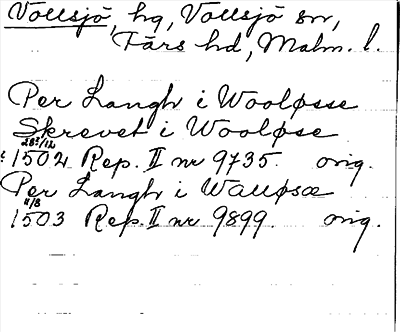 Vollsjö, hg, Vollsjö sn,
Färs hd, Malm. l.
Per Langh i Wooløsse
Skrevet i Wooløse
28/12
1502 Rep. II nr 9735. orig.
Per Langh i Walløsæ
11/8
1503 Rep. II nr 9899. orig.